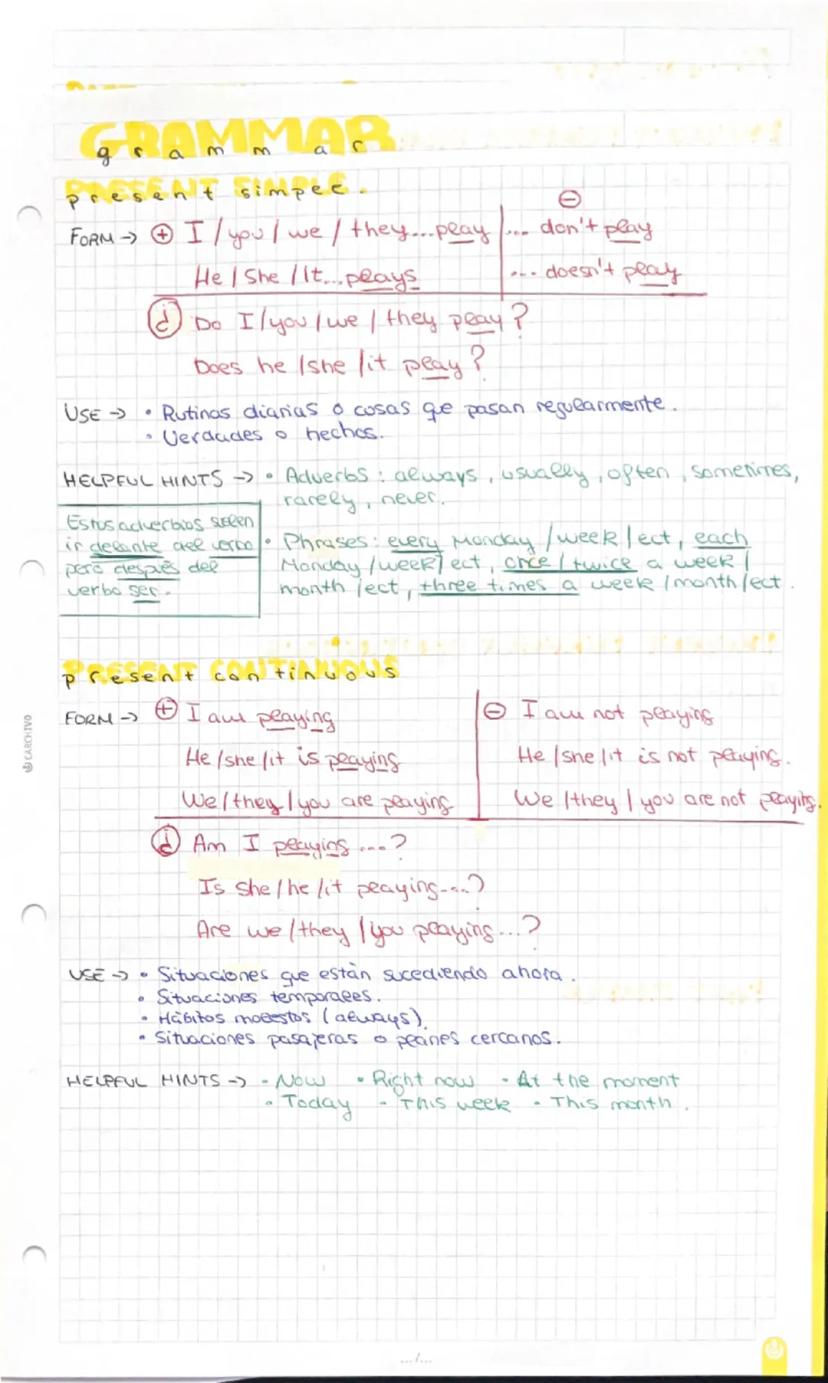 GRAMMAR
grammar
present simple.
⊖
FORM → ⊕ I / you / we / they...play | ... don't play
He / She / It...plays | ... doesn't play
¿ Do I / you / we / they play?
Does he / she / it play?
USE → • Rutinas diarias o cosas que pasan regularmente.
• Verdades o hechos.
HELPFUL HINTS → • Adverbs: always, usually, often, sometimes,
rarely, never.
Estos adverbios suelen
ir delante del verbo
pero después del
verbo ser.
• Phrases: every Monday / week / ect, each
Monday / week / ect, once / twice a week /
month / ect, three times a week / month / ect.
PRESENT CONTINUOUS
present continuous
FORM → ⊕ I am playing | ⊖ I am not playing
He / she / it is playing | He / she / it is not playing.
We / they / you are playing | We / they / you are not playing.
¿ Am I playing ...?
Is she / he / it playing...?
Are we / they / you playing...?
USE → • Situaciones que están sucediendo ahora.
• Situaciones temporales.
• Hábitos molestos (always)
• Situaciones pasajeras o planes cercanos.
HELPFUL HINTS → • Now • Right now • At the moment
• Today • This week • This month.
CARCHIVO
.../...